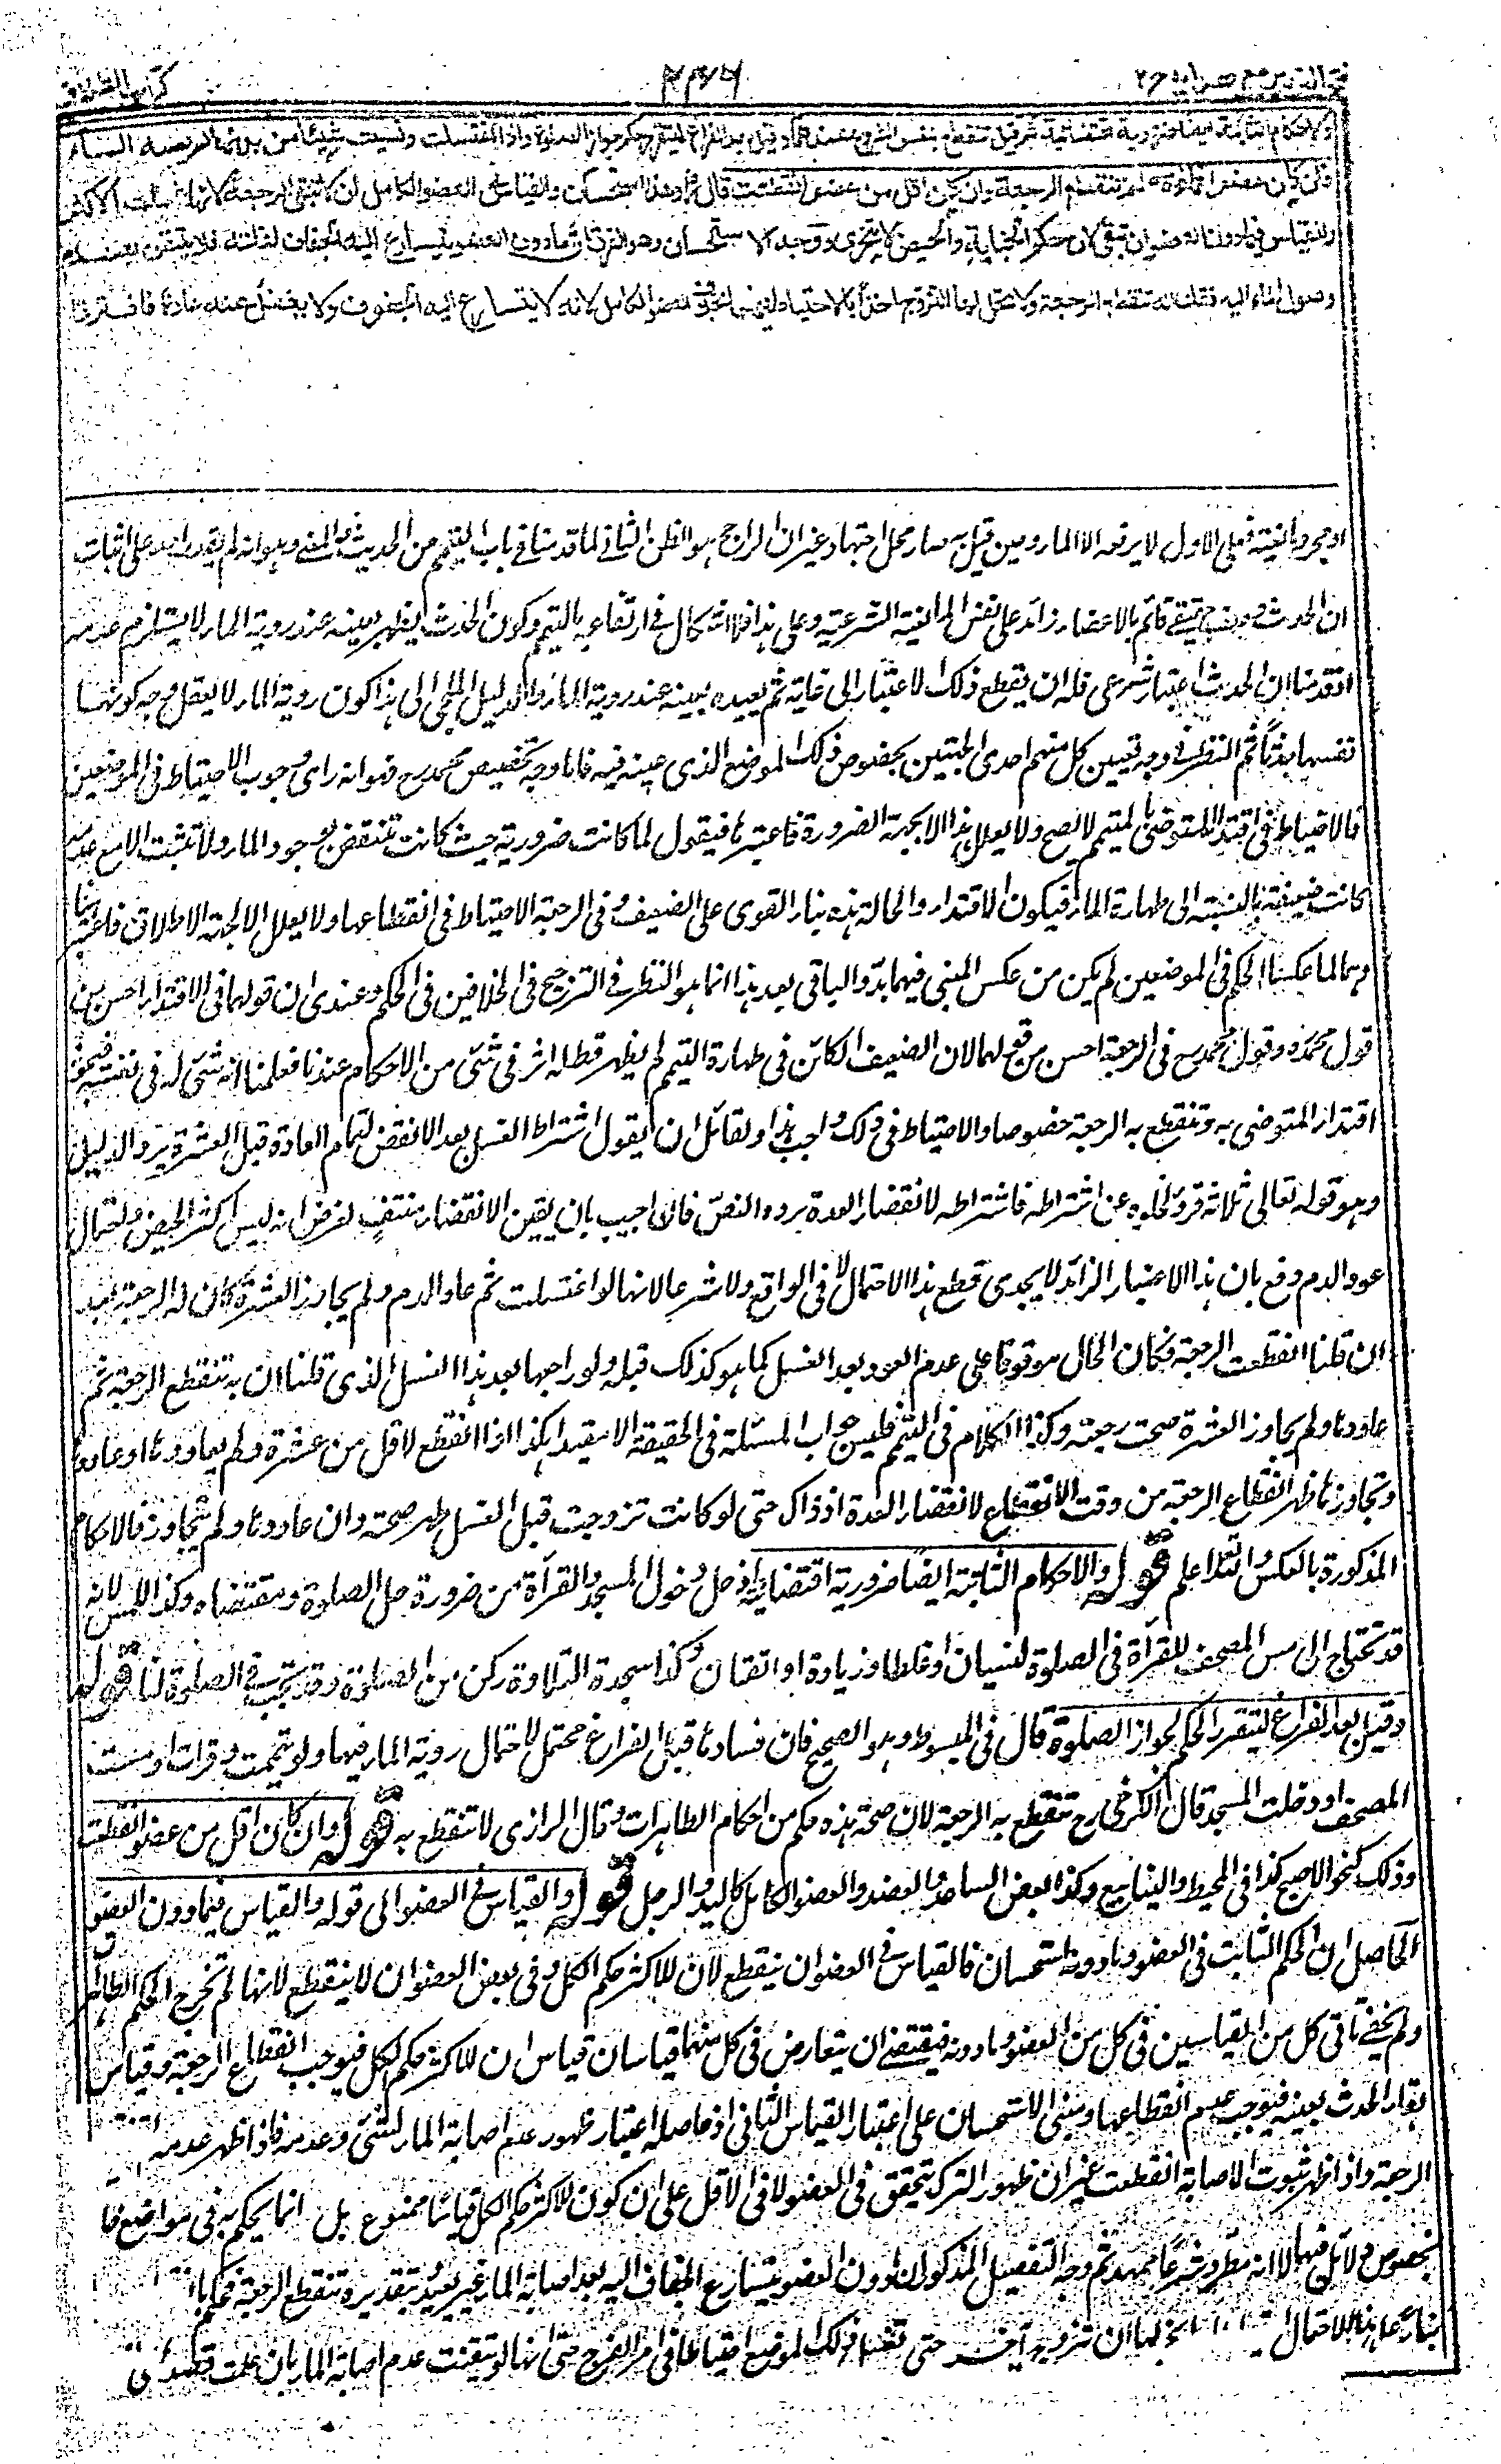 فتح القدير مع هداية ج٢
كتاب الطلاق
والاحكام الثابتة ايضا ضرورية اقتضائية ثم قيل تنقطع بنفس الشروع عندهما وقيل بعد الفراغ ليتقرر حكم جواز الصلوة واذا اغتسلت ونسيت شيئا من بدنها لم يصبه الماء
فان كان عضوا فما فوقه لم تنقطع الرجعة وان كان اقل من عضو انقطعت قال وهذا استحسان والقياس في العضو الكامل ان لا تبقى الرجعة لانها غسلت الاكثر
والقياس فيما دون العضو ان تبقى لان حكم الجنابة والحيض لا يتجزى ووجه الاستحسان وهو الفرق ان ما دون العضو يتسارع اليه الجفاف لقلته فلا يتيقن بعدم
وصول الماء اليه فقلنا انه تنقطع الرجعة ولا تحل لها التزوج اخذا بالاحتياط فيهما بخلاف العضو الكامل لانه لا يتسارع اليه الجفوف ولا يغفل عنه عادة فافترقا
او مجرد مانعية فعلى الاول لا يرفعه الا الماء ومن قبل به صار محل اجتهاد غير ان الراجح هو الظن الثاني لما قدمنا في باب التيمم من الحديث والمعنى وهو انه لم يقدر احد على اثبات
ان الحدث وصف حقيقي قائم بالاعضاء زائد على نفس المانعية الشرعية وعلى هذا فلا اشكال في ارتفاعه بالتيمم وكون الحدث يظهر بعينه عند روية الماء لا يستلزم عدمه
اذ قدمنا ان الحدث اعتبار شرعي فله ان يقطع ذلك الاعتبار الى غاية ثم يعيده بعينه عند روية الماء والدليل الملجى الى هذا كون روية الماء لا يعقل وجه كونها
نفسها حدثا ثم النظر في وجه تعيين كل منهم احدى الجهتين بخصوص ذلك الموضع الذي عينه فيه فاما وجه تخصيص محمد رح فهو انه راى وجوب الاحتياط في الموضعين
فالاحتياط في اقتداء المتوضئ بالمتيمم لا يصح ولا يعلل هذا الا بجهة الضرورة فاعتبرها فيقول لما كانت ضرورية حيث كانت تنتقض بوجود الماء ولا تثبت الا مع عدمه
كانت ضعيفة بالنسبة الى طهارة الماء فيكون الاقتداء والحالة هذه بناء القوي على الضعيف وفي الرجعة الاحتياط في انقطاعها ولا يعلل الا بجهة الاطلاق فاعتبرها
وهما لما عكسا الحكم في الموضعين لم يكن من عكس المبنى فيهما بد والباقي بعد هذا انما هو النظر في الترجيح في الخلافين في الحكم وعندي ان قولهما في الاقتداء احسن من
قول محمد رح وقول محمد رح في الرجعة احسن من قولهما لان الضعيف الكائن في طهارة التيمم لم يظهر قط له اثر في شئ من الاحكام عندنا فعلمنا انه شئ له في نفسه فيجوز
اقتداء المتوضي به وتنقطع به الرجعة خصوصا والاحتياط في ذلك واجب هذا ولقائل ان يقول اشتراط الغسل بعد الانقضا لتمام العادة قبل العشرة يرده الدليل
وهو قوله تعالى ثلاثة قروء لخلوه عن اشتراطه فاشتراطه لانقضاء العدة يرده النص فان اجيب بان تعين الانقضاء منتف لفرض انه ليس اكثر الحيض ولاحتمال
عود الدم دفع بان هذا الاعتبار الزائد لا يجدي قطع هذا الاحتمال لا في الواقع ولا شرعا لانها لو اغتسلت ثم عاد الدم ولم يجاوز العشرة كان له الرجعة بعد
ان قلنا انقطعت الرجعة فكان الحال موقوفا على عدم العود بعد الغسل كما هو كذلك قبله ولو راجعها بعد هذا الغسل الذي قلنا ان به تنقطع الرجعة ثم
عاودها ولم يجاوز العشرة صحت رجعته وكذا الكلام في التيمم فليس جواب المسئلة في الحقيقة الا مقيدا بكذا اذا انقطع لاقل من عشرة ولم يعاودها او عاودها
وتجاوزها ظهر انقطاع الرجعة من وقت الانقطاع لانقضاء العدة اذ ذاك حتى لو كانت تزوجت قبل الغسل ظهر صحته وان عاودها ولم يتجاوز فالاحكام
المذكورة بالعكس والله تعالى اعلم قوله والاحكام الثابتة ايضا ضرورية اقتضائية اذ حل دخول المسجد والقرأة من ضرورة حل الصلوة ومقتضاه وكذا المس لانه
قد تحتاج الى مس المصحف للقرأة في الصلوة لنسيان او غلط او زيادة او اتقان وكذا سجدة التلاوة ركن من الصلوة وقد تجب في الصلوة لنا قوله
وقيل بعد الفراغ ليتقرر الحكم لجواز الصلوة قال في المبسوط وهو الصحيح فان فسادها قبل الفراغ محتمل لاحتمال روية الماء فيها ولو تيممت وقرأت او مست
المصحف او دخلت المسجد قال الكرخي رح تنقطع به الرجعة لان صحة هذه حكم من احكام الطاهرات وقال الرازي لا تنقطع به قوله وان كان اقل من عضو انقطعت
وذلك كنحو الاصبع كذا في المحيط والينابيع وكذا بعض الساعد والعضد والعضو الكامل كاليد والرجل قوله والقياس في العضو الى قوله والقياس فيما دون العضو
الحاصل ان الحكم الثابت في العضو وما دونه استحسان فالقياس في العضو ان ينقطع لان للاكثر حكم الكل وفي بعض العضو ان لا ينقطع لانها لم تخرج الحكم الطاهر
ولم يخف تاتي كل من القياسين في كل من العضو وما دونه فيقتضي ان يتعارض في كل منهما قياسان قياس ان للاكثر حكم الكل فيوجب انقطاع الرجعة وقياس
بقاء الحدث بعينه فيوجب عدم انقطاعها ومبنى الاستحسان على اعتبار القياس الثاني اذ حاصله اعتبار ظهور عدم اصابة الماء لشئ وعدمه فاذا ظهر عدمه
الرجعة واذا ظهر ثبوت الاصابة انقطعت غير ان ظهور الترك يتحقق في العضو لا في الاقل على ان كون للاكثر حكم الكل قياسا ممنوع بل انما يحكم به في مواضع
بخصوص دلائل فيها لا انه مطرد شرعا ممهد ثم وجه التفصيل المذكور ان ما دون العضو يتسارع الجفاف اليه بعد اصابة الماء غير بعيد بتقديره وتنقطع الرجعة
بناء على هذا الاحتمال لها ان تتزوج باخر حتى تغسل ذلك الموضع احتياطا في امر الفرج حتى انها لو تيقنت عدم اصابة الماء بان علمت